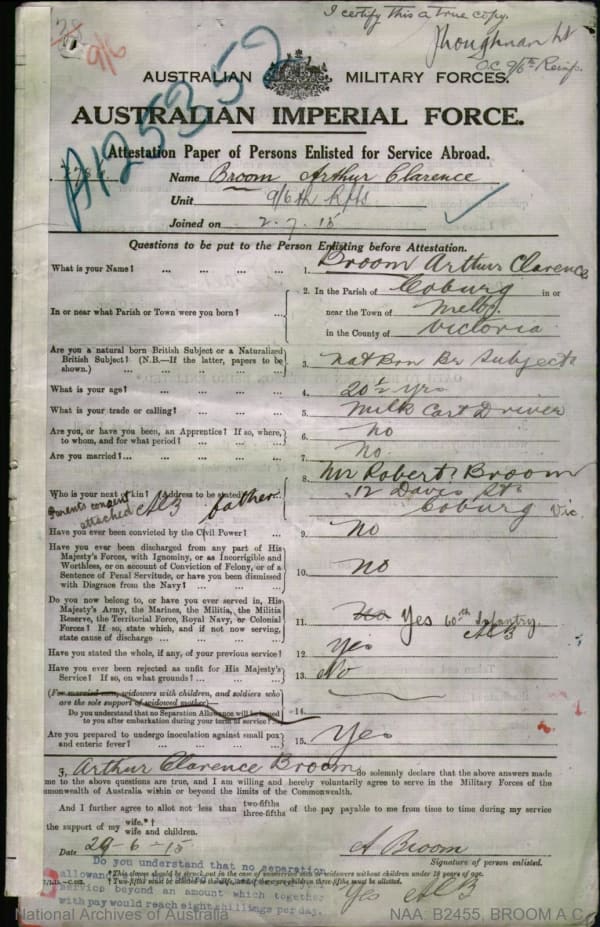 I certify this a true copy.
O.C. 9/6th Reinf.
9/6
A125352
AUSTRALIAN MILITARY FORCES.
AUSTRALIAN IMPERIAL FORCE.
Attestation Paper of Persons Enlisted for Service Abroad.
Name Broom Arthur Clarence
Unit 9/6th Rfts
Joined on 2.7.15
Questions to be put to the Person Enlisting before Attestation.
What is your Name? ... ... ... ... 1. Broom Arthur Clarence
In or near what Parish or Town were you born? ... 2. In the Parish of Coburg in or
near the Town of Melb.
in the County of Victoria
Are you a natural born British Subject or a Naturalized
British Subject? (N.B.—If the latter, papers to be
shown.) ... ... ... ... 3. Nat Bon Br Subject
What is your age? ... ... ... ... 4. 20½ yrs
What is your trade or calling? ... ... ... 5. Milk Cart Driver
Are you, or have you been, an Apprentice? If so, where,
to whom, and for what period? ... ... ... 6. No
Are you married? ... ... ... ... 7. No.
Who is your next of kin? (Address to be stated) 8. Mr Robert Broom
father 12 Davis St
Coburg Vic.
Parents consent
attached ACB
Have you ever been convicted by the Civil Power? ... 9. No
Have you ever been discharged from any part of His
Majesty's Forces, with Ignominy, or as Incorrigible and
Worthless, or on account of Conviction of Felony, or of a
Sentence of Penal Servitude, or have you been dismissed
with Disgrace from the Navy? ... ... ... 10. No
Do you now belong to, or have you ever served in, His
Majesty's Army, the Marines, the Militia, the Militia
Reserve, the Territorial Force, Royal Navy, or Colonial
Forces? If so, state which, and if not now serving,
state cause of discharge ... ... ... 11. No Yes 60th Infantry
ACB
Have you stated the whole, if any, of your previous service? 12. Yes
Have you ever been rejected as unfit for His Majesty's
Service? If so, on what grounds? ... ... ... 13. No
(For married men, widowers with children, and soldiers who
are the sole support of widowed mother)—
Do you understand that no Separation Allowance will be issued
to you after embarkation during your term of service? 14.
Are you prepared to undergo inoculation against small pox
and enteric fever? ... ... ... ... 15. Yes
I, Arthur Clarence Broom do solemnly declare that the above answers made
me to the above questions are true, and I am willing and hereby voluntarily agree to serve in the Military Forces of the
ommonwealth of Australia within or beyond the limits of the Commonwealth.
And I further agree to allot not less than two-fifths
three-fifths of the pay payable to me from time to time during my service
the support of my wife,*†
wife and children.
Date 29-6-15 A Broom
Signature of person enlisted.
*This clause should be struck out in the case of unmarried men or widowers without children under 18 years of age.
Do you understand that no separation
allowan
service beyond an amount which together
with pay would reach eight shillings per day.
Yes ACB
National Archives of Australia NAA: B2455, BROOM A C